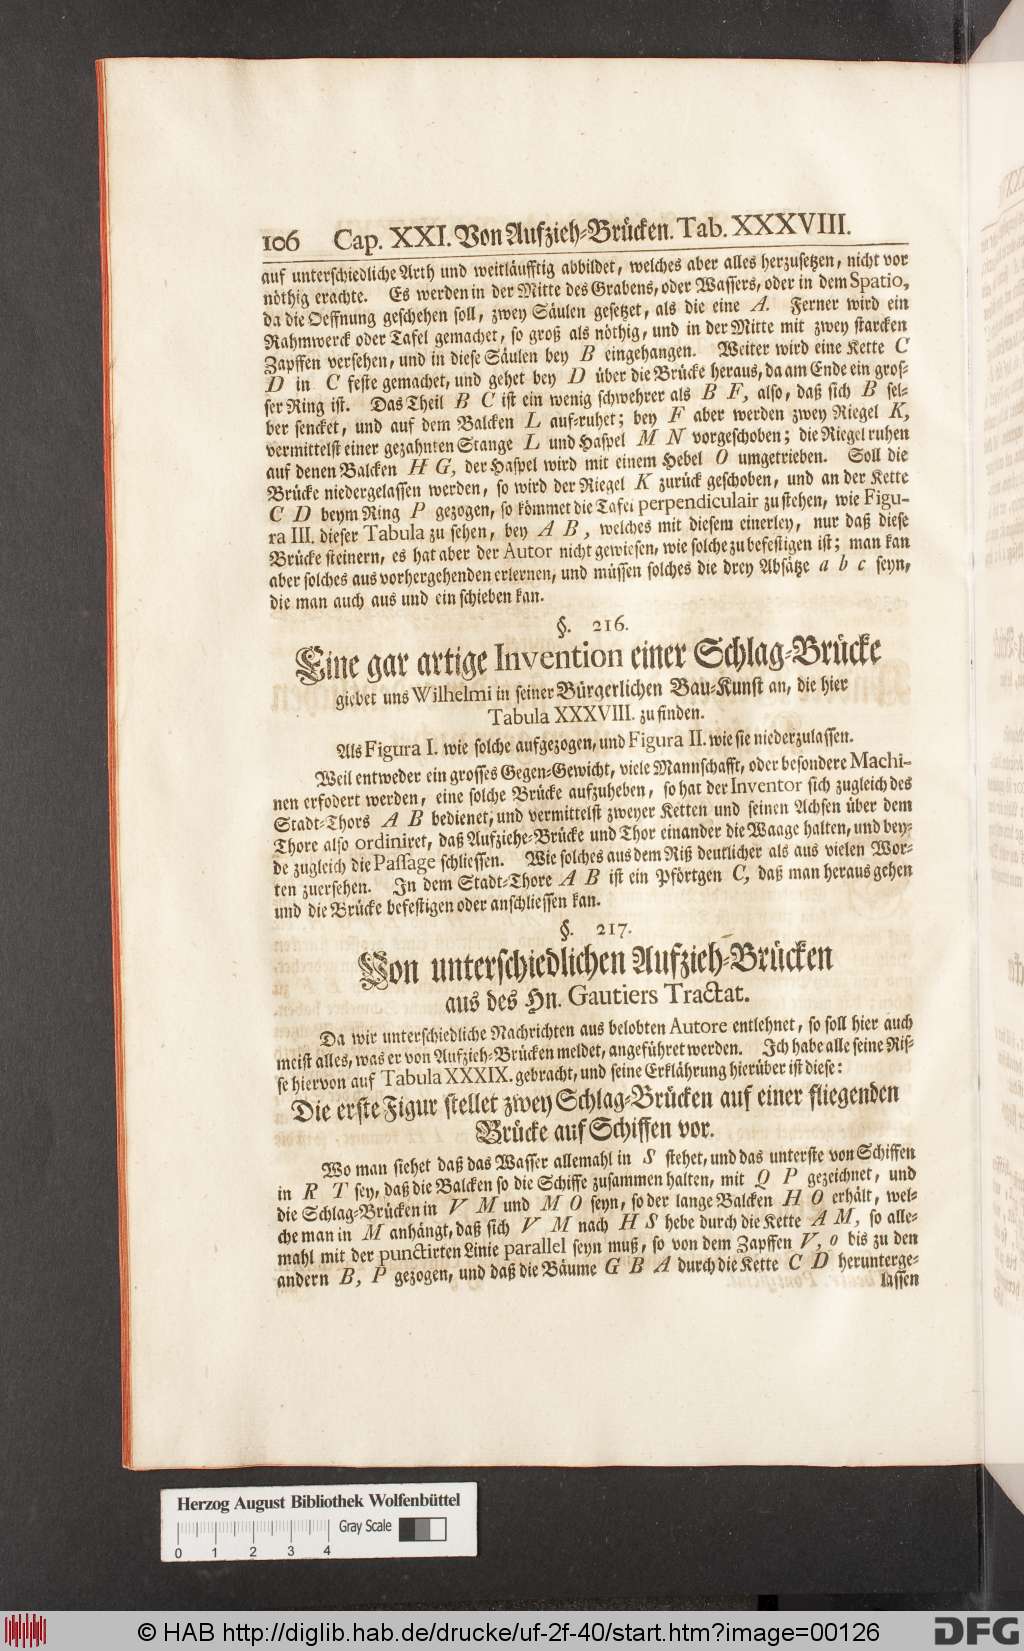 106 Cap. XXI. Von Aufzieh-Brücken. Tab. XXXVIII.
auf unterschiedliche Arth und weitläufftig abbildet, welches aber alles herzusetzen, nicht vor
nöthig erachte. Es werden in der Mitte des Grabens, oder Wassers, oder in dem Spatio,
da die Oeffnung geschehen soll, zwey Säulen gesetzet, als die eine A. Ferner wird ein
Rahmwerck oder Tafel gemachet, so groß als nöthig, und in der Mitte mit zwey starcken
Zapffen versehen, und in diese Säulen bey B eingehangen. Weiter wird eine Kette C
D in C feste gemachet, und gehet bey D über die Brücke heraus, da am Ende ein gros-
ser Ring ist. Das Theil B C ist ein wenig schwehrer als B F, also, daß sich B sel-
ber sencket, und auf dem Balcken L auf-ruhet; bey F aber werden zwey Riegel K,
vermittelst einer gezahnten Stange L und Haspel M N vorgeschoben; die Riegel ruhen
auf denen Balcken H G, der Haspel wird mit einem Hebel O umgetrieben. Soll die
Brücke niedergelassen werden, so wird der Riegel K zurück geschoben, und an der Kette
C D beym Ring P gezogen, so kömmet die Tafel perpendiculair zu stehen, wie Figu-
ra III. dieser Tabula zu sehen, bey A B, welches mit diesem einerley, nur daß diese
Brücke steinern, es hat aber der Autor nicht gewiesen, wie solche zu befestigen ist; man kan
aber solches aus vorhergehenden erlernen, und müssen solches die drey Absätze a b c seyn,
die man auch aus und ein schieben kan.
§. 216.
Eine gar artige Invention einer Schlag-Brücke
giebet uns Wilhelmi in seiner Bürgerlichen Bau-Kunst an, die hier
Tabula XXXVIII. zu finden.
Als Figura I. wie solche aufgezogen, und Figura II. wie sie niederzulassen.
Weil entweder ein grosses Gegen-Gewicht, viele Mannschafft, oder besondere Machi-
nen erfodert werden, eine solche Brücke aufzuheben, so hat der Inventor sich zugleich des
Stadt-Thors A B bedienet, und vermittelst zweyer Ketten und seinen Achsen über dem
Thore also ordiniret, daß Aufziehe-Brücke und Thor einander die Waage halten, und bey-
de zugleich die Passage schliessen. Wie solches aus dem Riß deutlicher als aus vielen Wor-
ten zuersehen. In dem Stadt-Thore A B ist ein Pförtgen C, daß man heraus gehen
und die Brücke befestigen oder anschliessen kan.
§. 217.
Von unterschiedlichen Aufzieh-Brücken
aus des Hn. Gautiers Tractat.
Da wir unterschiedliche Nachrichten aus belobten Autore entlehnet, so soll hier auch
meist alles, was er von Aufzieh-Brücken meldet, angeführet werden. Ich habe alle seine Ris-
se hiervon auf Tabula XXXIX. gebracht, und seine Erklährung hierüber ist diese:
Die erste Figur stellet zwey Schlag-Brücken auf einer fliegenden
Brücke auf Schiffen vor.
Wo man siehet daß das Wasser allemahl in S stehet, und das unterste von Schiffen
in R T sey, daß die Balcken so die Schiffe zusammen halten, mit Q P gezeichnet, und
die Schlag-Brücken in V M und M O seyn, so der lange Balcken H O erhält, wel-
che man in M anhängt, daß sich V M nach H S hebe durch die Kette A M, so alle-
mahl mit der punctirten Linie parallel seyn muß, so von dem Zapffen V, o bis zu den
andern B, P gezogen, und daß die Bäume G B A durch die Kette C D herunterge-
lassen
Herzog August Bibliothek Wolfenbüttel
Gray Scale
0 1 2 3 4
© HAB http://diglib.hab.de/drucke/uf-2f-40/start.htm?image=00126
DFG